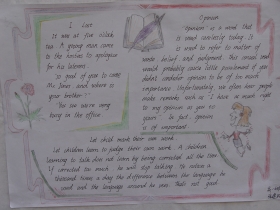 I Late
It was at five o'clock
A young man came
to the hostess to apologize
for his lateness
so good of you to come
Mr Jones and where is
your brother?
You see we're very
busy in the office
Opinion
Opinion is a word that
is used carelessly today It
is used to refer to matter of
taste belief and judgement This casual use
would probably cause little confusion if you
didn't opinion to be of too much
importance Unfortunately we often hear people
make remarks such as I have as much right
to my opinion as you to
yours In fact opinion
is of important
Let child mark their own work
Let children learn to judge their own work A children
learning to talk did not learn by being corrected all the time
If corrected too much he will stop talking He notices a
thousand times a day the difference between the language he
used and the language around he uses that's not good